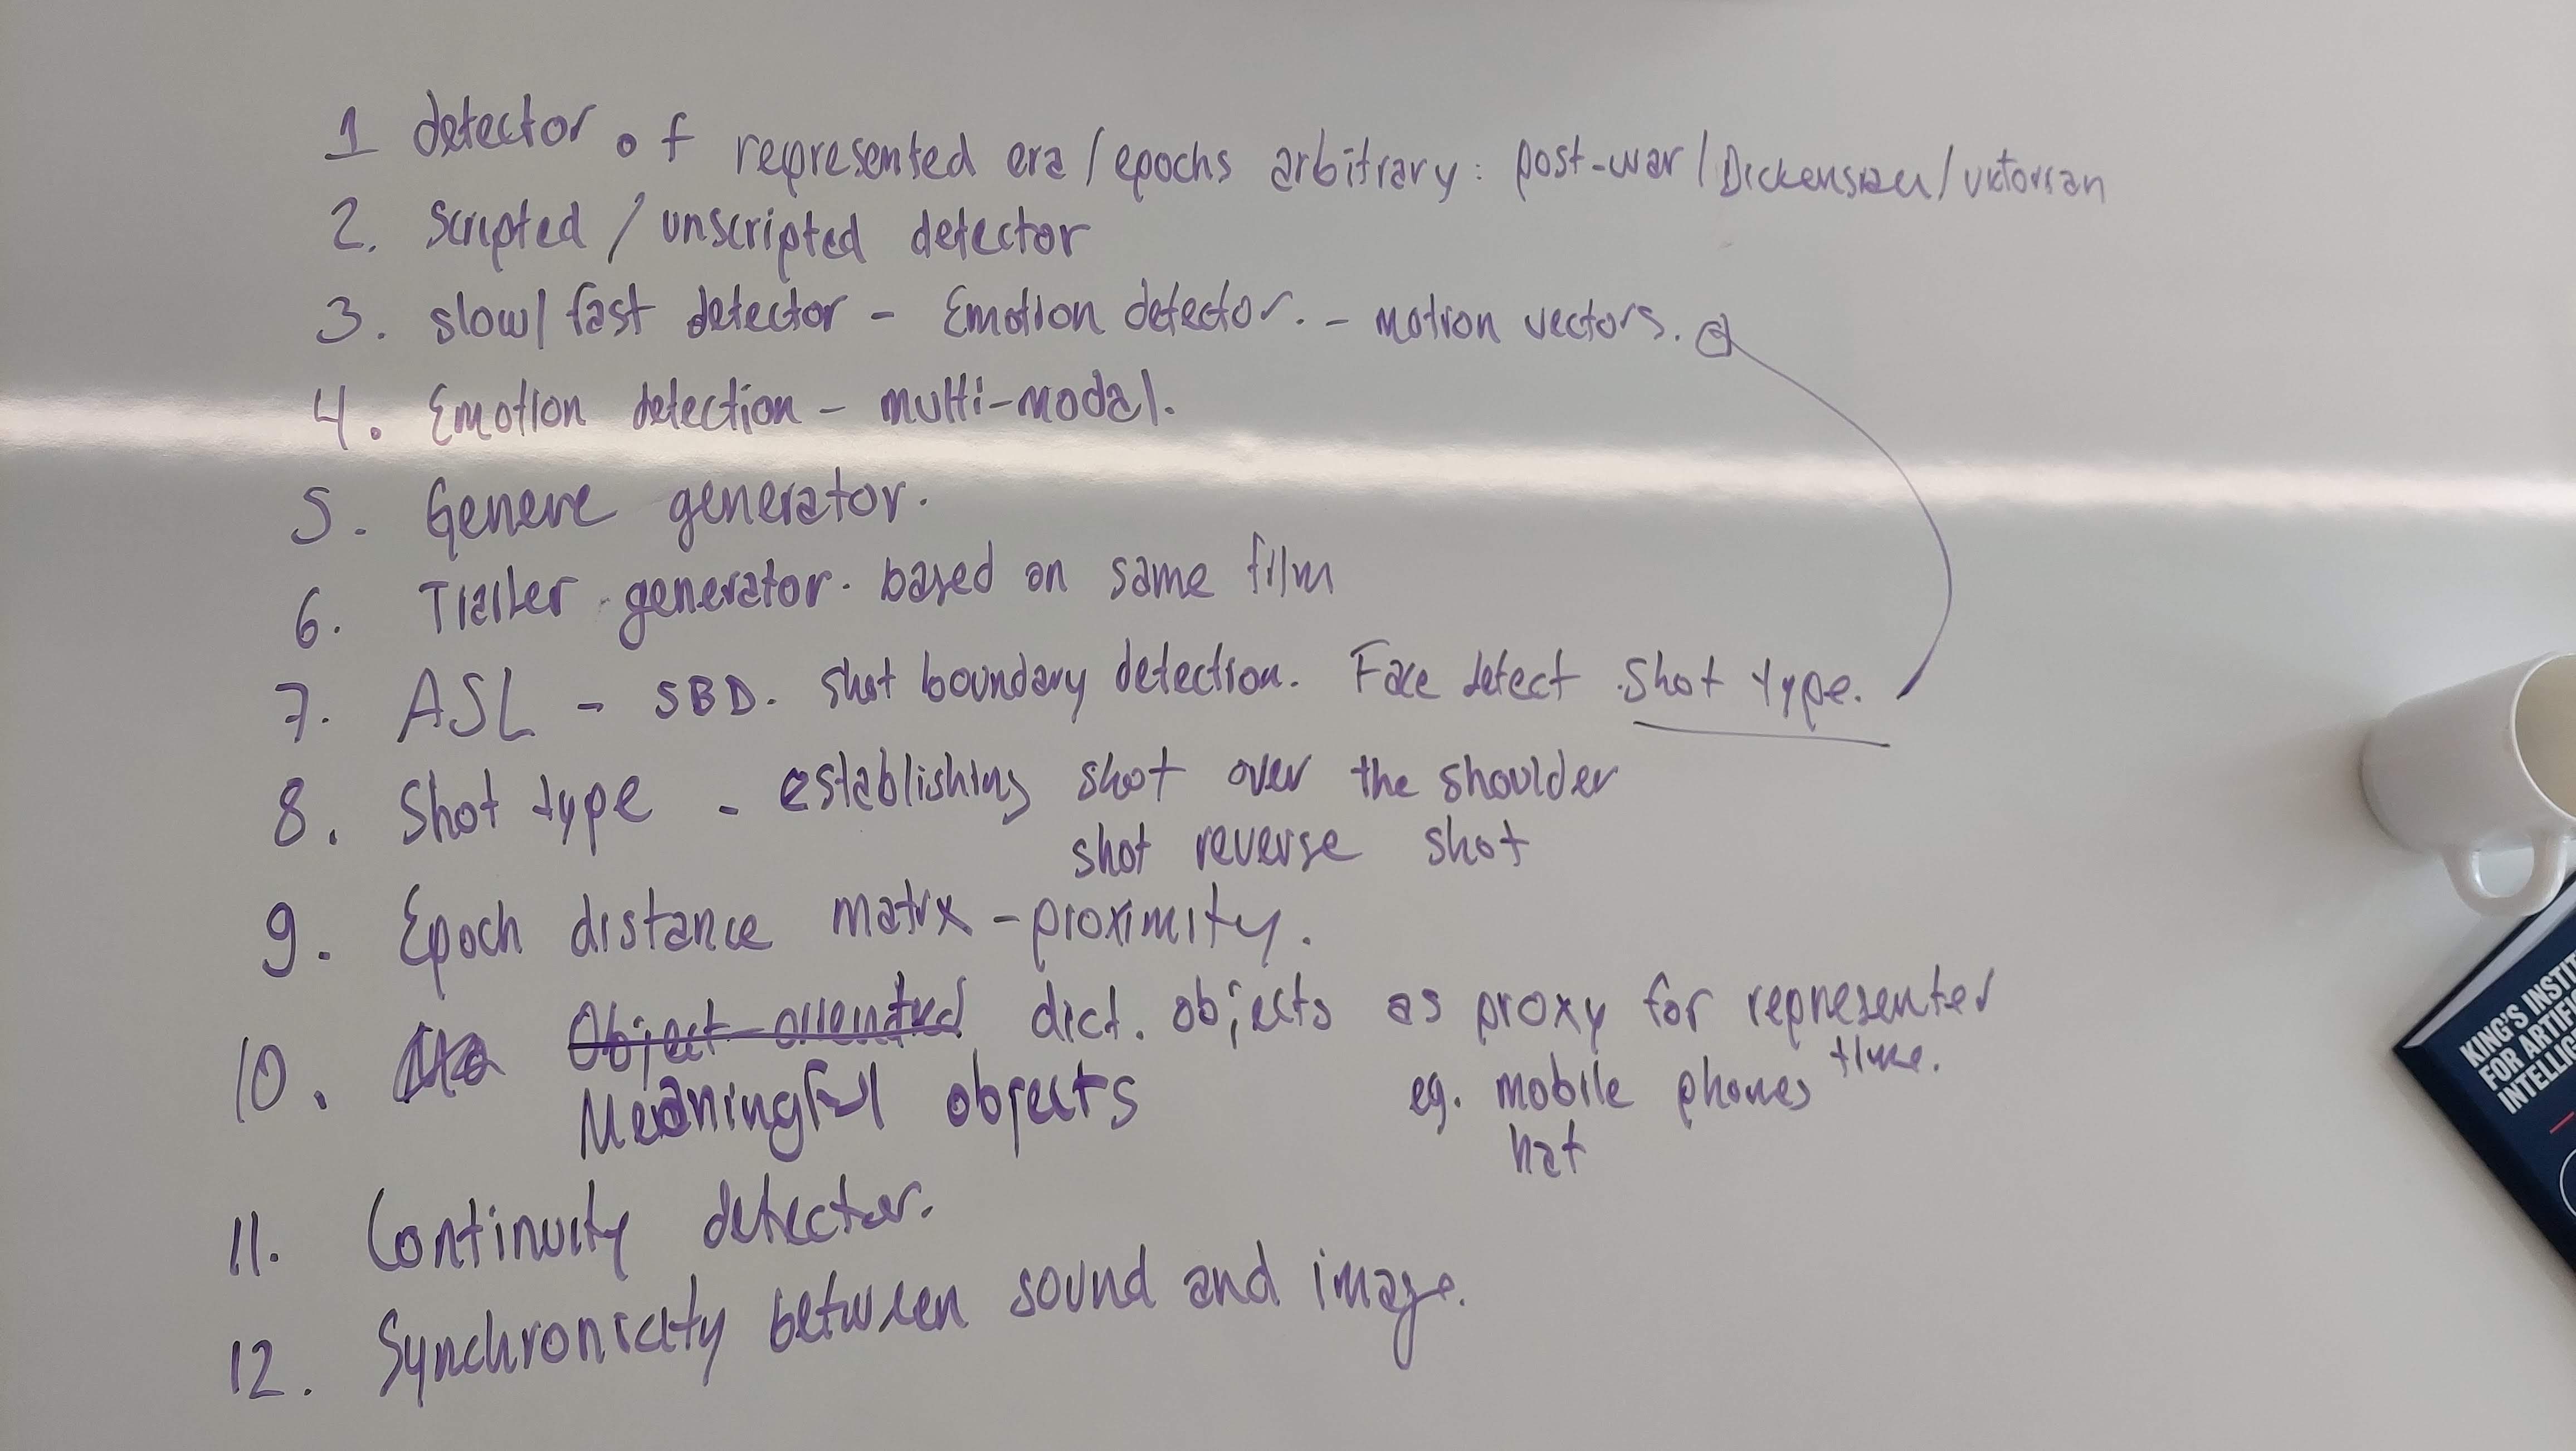 1 detector of represented era/epochs arbitrary: post-war/Dickensian/victorian
2. Scripted / unscripted detector
3. slow/fast detector - Emotion detector. - motion vectors.
4. Emotion detection - multi-modal.
5. Genere generator.
6. Trailer generator. based on same film
7. ASL - SBD. shot boundary detection. Face detect shot type.
8. Shot type - establishing shot over the shoulder
shot reverse shot
9. Epoch distance matrix - proximity.
10. Object oriented dict. objects as proxy for represented
time.
Meaningful objects eg. mobile phones
hat
11. Continuity detector.
12. Synchronicity between sound and image.
KING'S
FOR